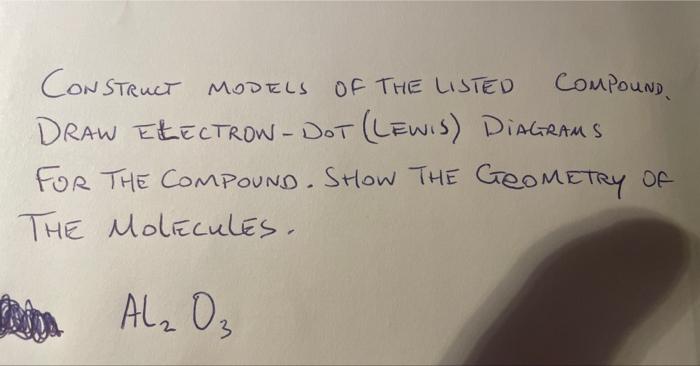 CONSTRUCT MODELS OF THE LISTED COMPOUND.
DRAW ELECTRON-DOT (LEWIS) DIAGRAMS
FOR THE COMPOUND. SHOW THE GEOMETRY OF
THE MOLECULES.
Al₂O₃